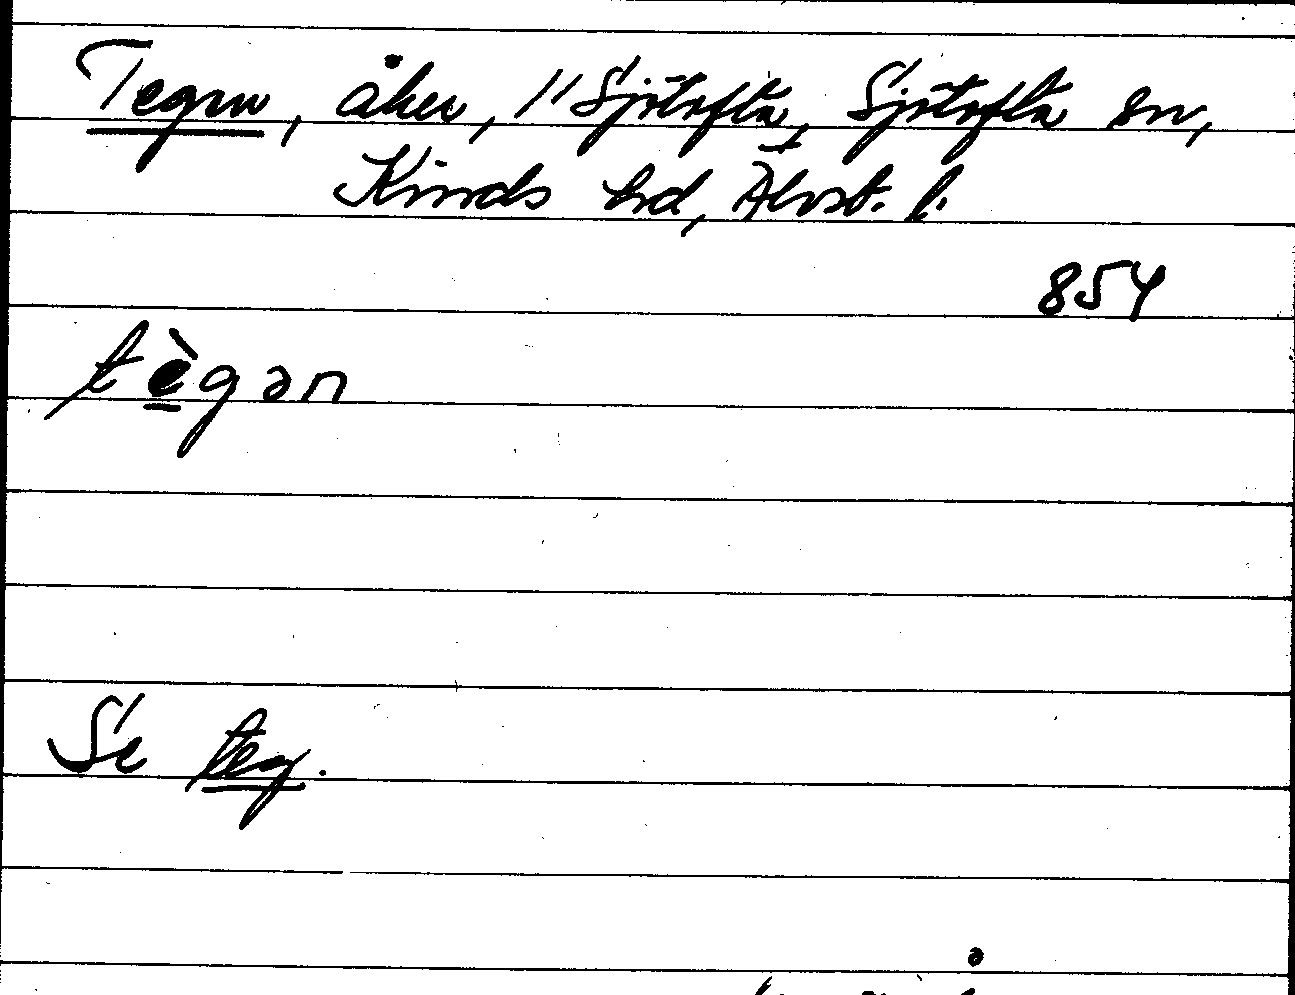 Tegen, åker, 1/1 Sjötofta, Sjötofta sn,
Kinds hd, Älvsb. l.
854
tègən
Se teg.